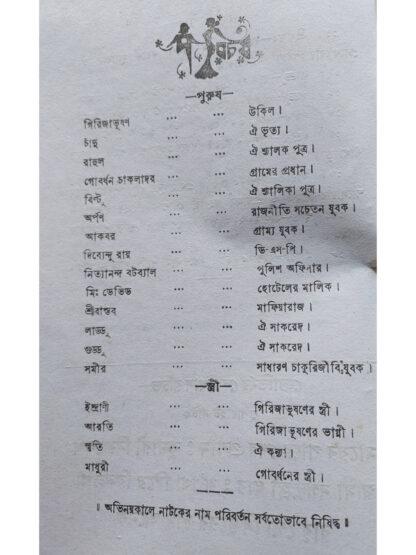 পরিচয়
—পুরুষ—
গিরিজাভূষণ ... ... উকিল।
চাঁদু ... ... ঐ ভৃত্য।
রাহুল ... ... ঐ শ্যালক পুত্র।
গোবর্ধন চাকলাদার ... ... গ্রামের প্রধান।
বিল্টু ... ... ঐ শ্যালিকা পুত্র।
অর্পণ ... ... রাজনীতি সচেতন যুবক।
আকবর ... ... গ্রাম্য যুবক।
দিব্যেন্দু রায় ... ... ডি-এস-পি।
নিত্যানন্দ বটব্যাল ... ... পুলিশ অফিসার।
মিঃ ডেভিড ... ... হোটেলের মালিক।
শ্রীবাস্তব ... ... মাফিয়ারাজ।
লাড্ডু ... ... ঐ সাকরেদ।
গুড্ডু ... ... ঐ সাকরেদ।
সমীর ... ... সাধারণ চাকুরিজীবি যুবক।
—স্ত্রী—
ইন্দ্রাণী ... ... গিরিজাভূষণের স্ত্রী।
আরতি ... ... গিরিজাভূষণের ভাগ্নী।
স্মৃতি ... ... ঐ কন্যা।
মাধুরী ... ... গোবর্ধনের স্ত্রী।
॥ অভিনয়কালে নাটকের নাম পরিবর্তন সর্বতোভাবে নিষিদ্ধ ॥